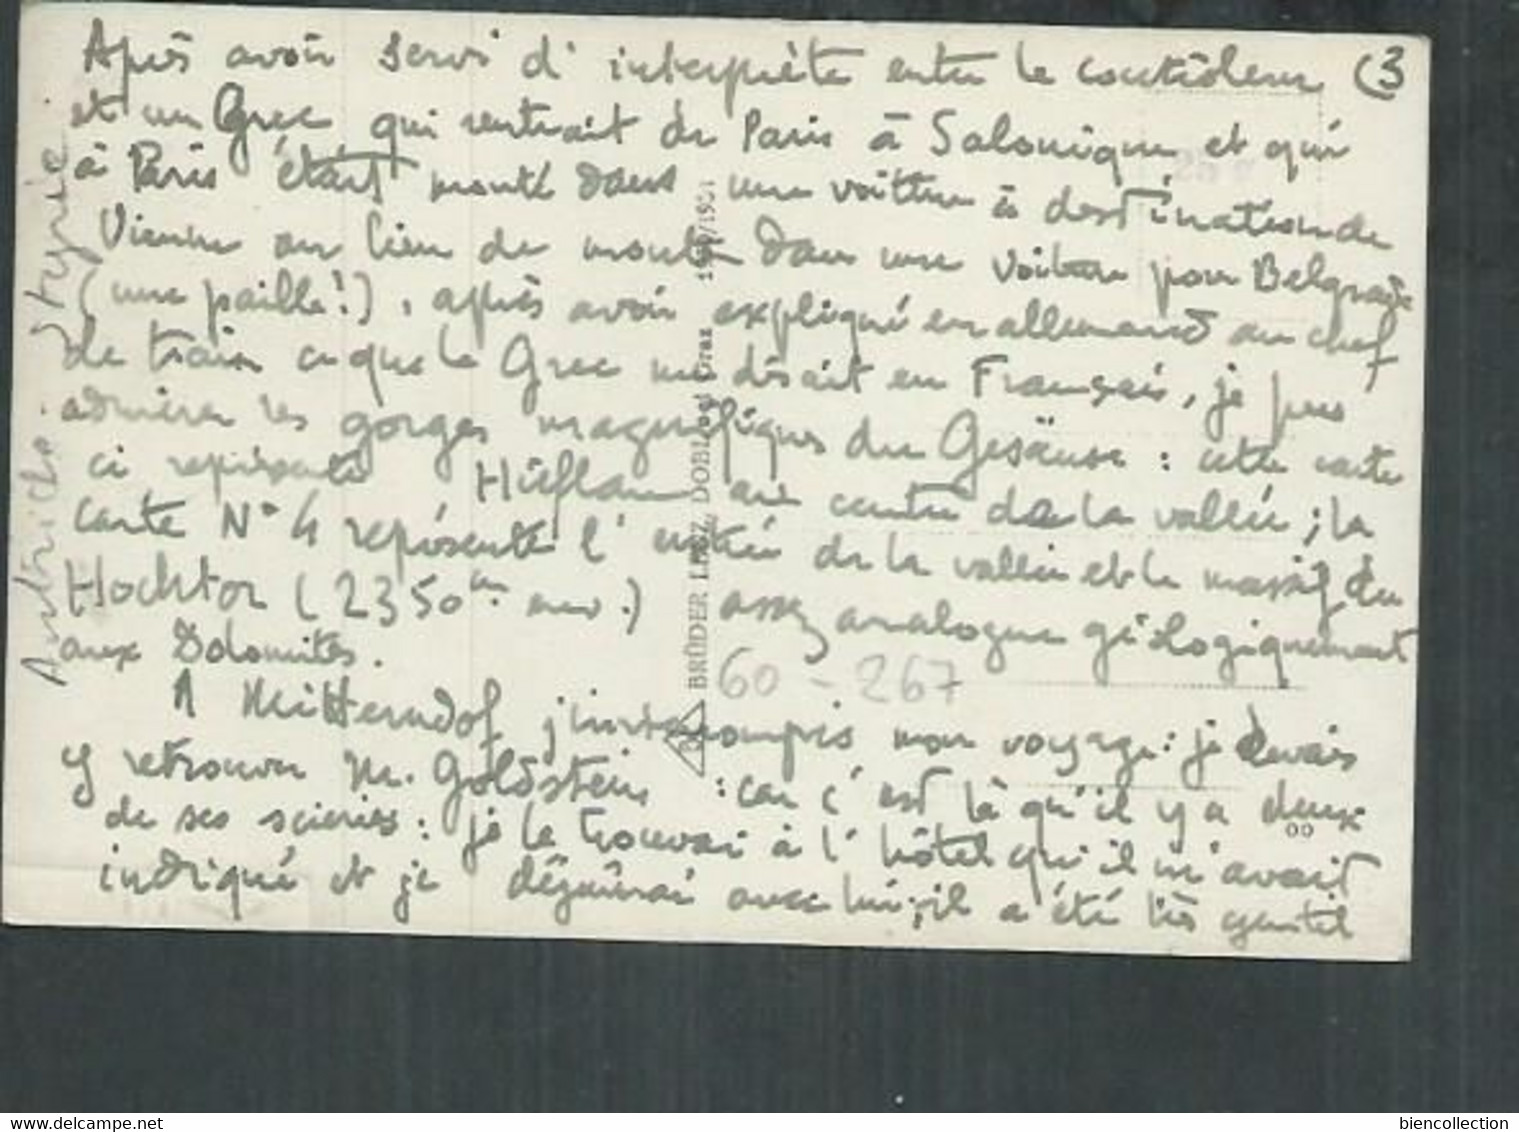 Après avoir servi d'interprète entre le contrôleur (3
et un Grec qui rentrait de Paris à Salonique et qui
à Paris était monté dans une voiture à destination de
Vienne au lieu de monter dans une voiture pour Belgrade
(une paille!), après avoir expliqué en allemand au chef
de train ce que le Grec me disait en Français, je pus
admirer les gorges magnifiques du Gesäuse : cette carte
ci représente Hieflau au centre de la vallée ; la
carte N° 4 représente l'entrée de la vallée et le massif du
Hochtor (2350 m. env.) assez analogue géologiquement
aux Dolomites.
A Mitterndorf j'interrompis mon voyage : je devais
y retrouver M. Goldstein : car c'est là qu'il y a deux
de ses scieries : je le trouvai à l'hôtel qu'il m'avait
indiqué et je déjeûnai avec lui ; il a été très gentil
Autriche. Styrie.
BRÜDER LENZ, DOBL bei Graz
/1931
60-267
00
www.delcampe.net
biencollection